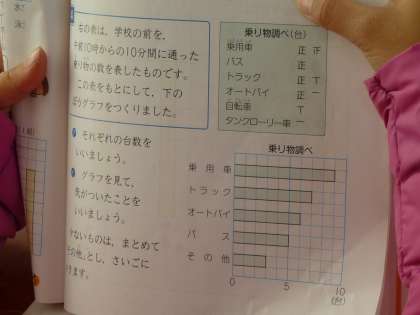 右の表は、学校の前を、
午前10時からの10分間に通った
乗り物の数を表したものです。
この表をもとにして、下の
ぼうグラフをつくりました。
乗り物調べ(台)
乗用車 正 正
バス 正
トラック 正 T
オートバイ 正 一
自転車 T
タンクローリー車 一
それぞれの台数を
いいましょう。
グラフを見て、
気がついたことを
いいましょう。
ないものは、まとめて
その他」とし、さいごに
きます。
乗り物調べ
乗用車
トラック
オートバイ
バス
その他
0 5 10
(台)